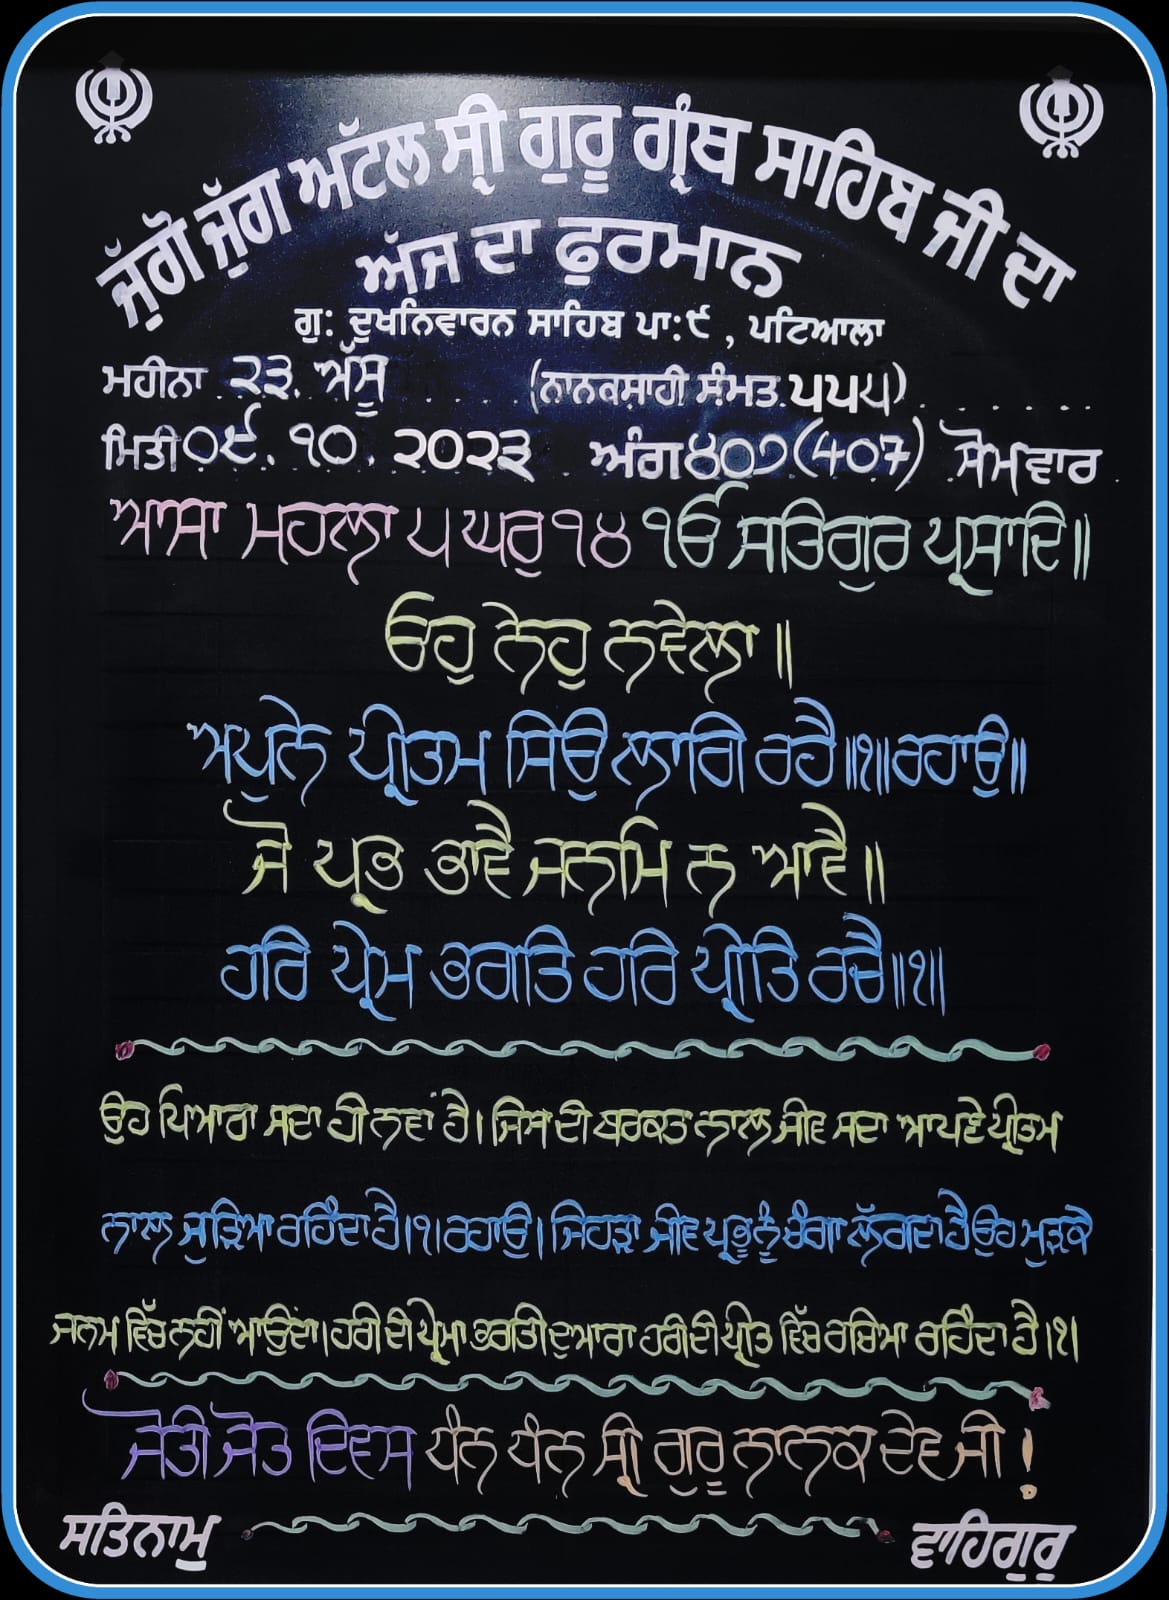 ਜੁੱਗੋ ਜੁੱਗ ਅਟੱਲ ਸ੍ਰੀ ਗੁਰੂ ਗ੍ਰੰਥ ਸਾਹਿਬ ਜੀ ਦਾ
ਅੱਜ ਦਾ ਫੁਰਮਾਨ
ਗੁ: ਦੁਖਨਿਵਾਰਨ ਸਾਹਿਬ ਪਾ:੯ , ਪਟਿਆਲਾ
ਮਹੀਨਾ ੨੩ ਅੱਸੂ (ਨਾਨਕਸ਼ਾਹੀ ਸੰਮਤ ੫੫੫)
ਮਿਤੀ ੦੯.੧੦.੨੦੨੩ ਅੰਗ ੪੦੭ (407) ਸੋਮਵਾਰ
ਆਸਾ ਮਹਲਾ ੫ ਘਰੁ ੧੪ ੴ ਸਤਿਗੁਰ ਪ੍ਰਸਾਦਿ॥
ਓਹੁ ਨੇਹੁ ਨਵੇਲਾ॥
ਅਪੁਨੇ ਪ੍ਰੀਤਮ ਸਿਉ ਲਾਗਿ ਰਹੈ॥੧॥ਰਹਾਉ॥
ਜੋ ਪ੍ਰਭ ਭਾਵੈ ਜਨਮਿ ਨ ਆਵੈ॥
ਹਰਿ ਪ੍ਰੇਮ ਭਗਤਿ ਹਰਿ ਪ੍ਰੀਤਿ ਰਚੈ॥੧॥
ਉਹ ਪਿਆਰਾ ਸਦਾ ਹੀ ਨਵਾਂ ਹੈ। ਜਿਸ ਦੀ ਬਰਕਤ ਨਾਲ ਜੀਵ ਸਦਾ ਆਪਣੇ ਪ੍ਰੀਤਮ
ਨਾਲ ਜੁੜਿਆ ਰਹਿੰਦਾ ਹੈ।੧। ਰਹਾਉ। ਜਿਹੜਾ ਜੀਵ ਪ੍ਰਭੂ ਨੂੰ ਚੰਗਾ ਲੱਗਦਾ ਹੈ ਉਹ ਮੁੜਕੇ
ਜਨਮ ਵਿੱਚ ਨਹੀਂ ਆਉਂਦਾ। ਹਰੀ ਦੀ ਪ੍ਰੇਮਾ ਭਗਤੀ ਦੁਆਰਾ ਹਰੀ ਦੀ ਪ੍ਰੀਤ ਵਿੱਚ ਰਚਿਆ ਰਹਿੰਦਾ ਹੈ।੧।
ਜੋਤੀ ਜੋਤ ਦਿਵਸ ਧੰਨ ਧੰਨ ਸ੍ਰੀ ਗੁਰੂ ਨਾਨਕ ਦੇਵ ਜੀ !
ਸਤਿਨਾਮੁ ਵਾਹਿਗੁਰੁ